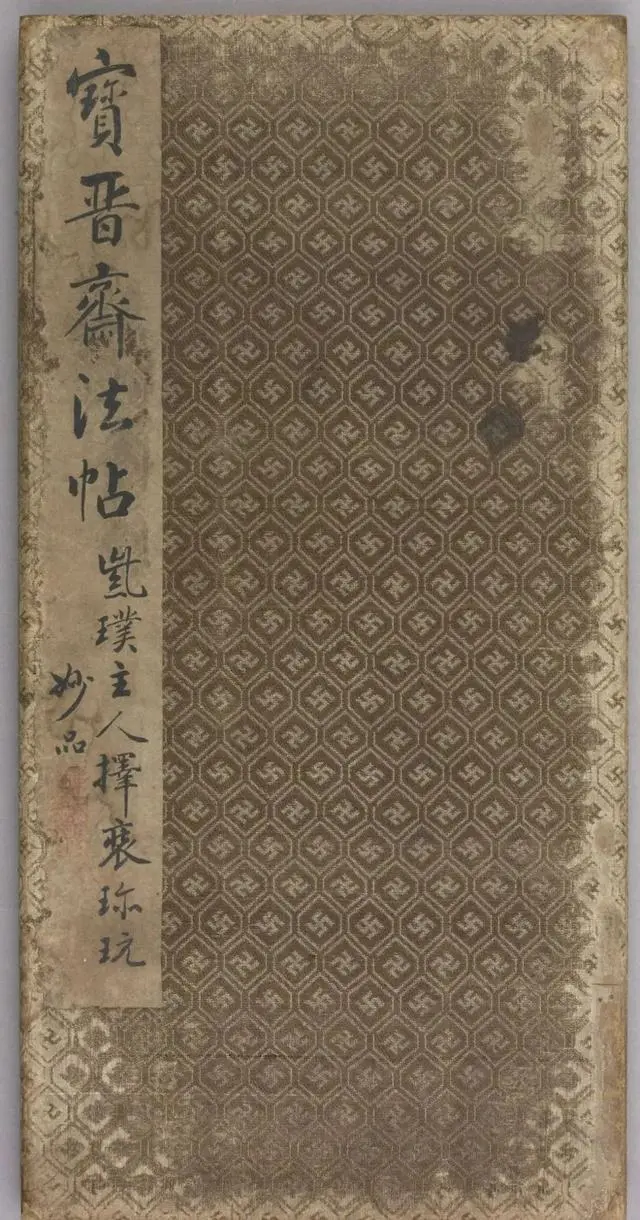 寶晋齋法帖
璞主人擇裒珎玩
妙品